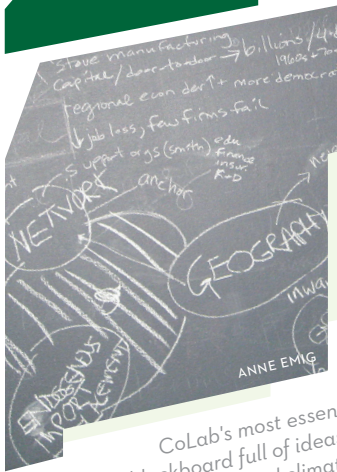 stove manufacturing
capital/door to door → billions/
1960s
regional econ der↑ + more democra
↓ job loss, few firms fail
support orgs (smstn) edu
finance
insur.
R+D
anchor
NETWORK
GEOGRAPHY
inwa
ENDOGENOUS
IMPORT
REPLACEMENT
ANNE EMIG
CoLab's most essen
ckboard full of idea